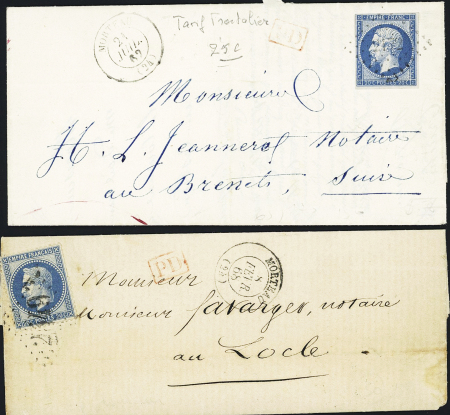 MORTEAU
21
JUIL
62
(24)
Tarif frontalier
25c
PD
EMPIRE FRANC.
Monsieur
H. L. Jeanneret Notaire
au Brenets, Suisse
EMPIRE FRANÇAIS
PD
MORTEAU
8
FEVR.
68
(24)
Monsieur
Monsieur Favarger, notaire
au Locle